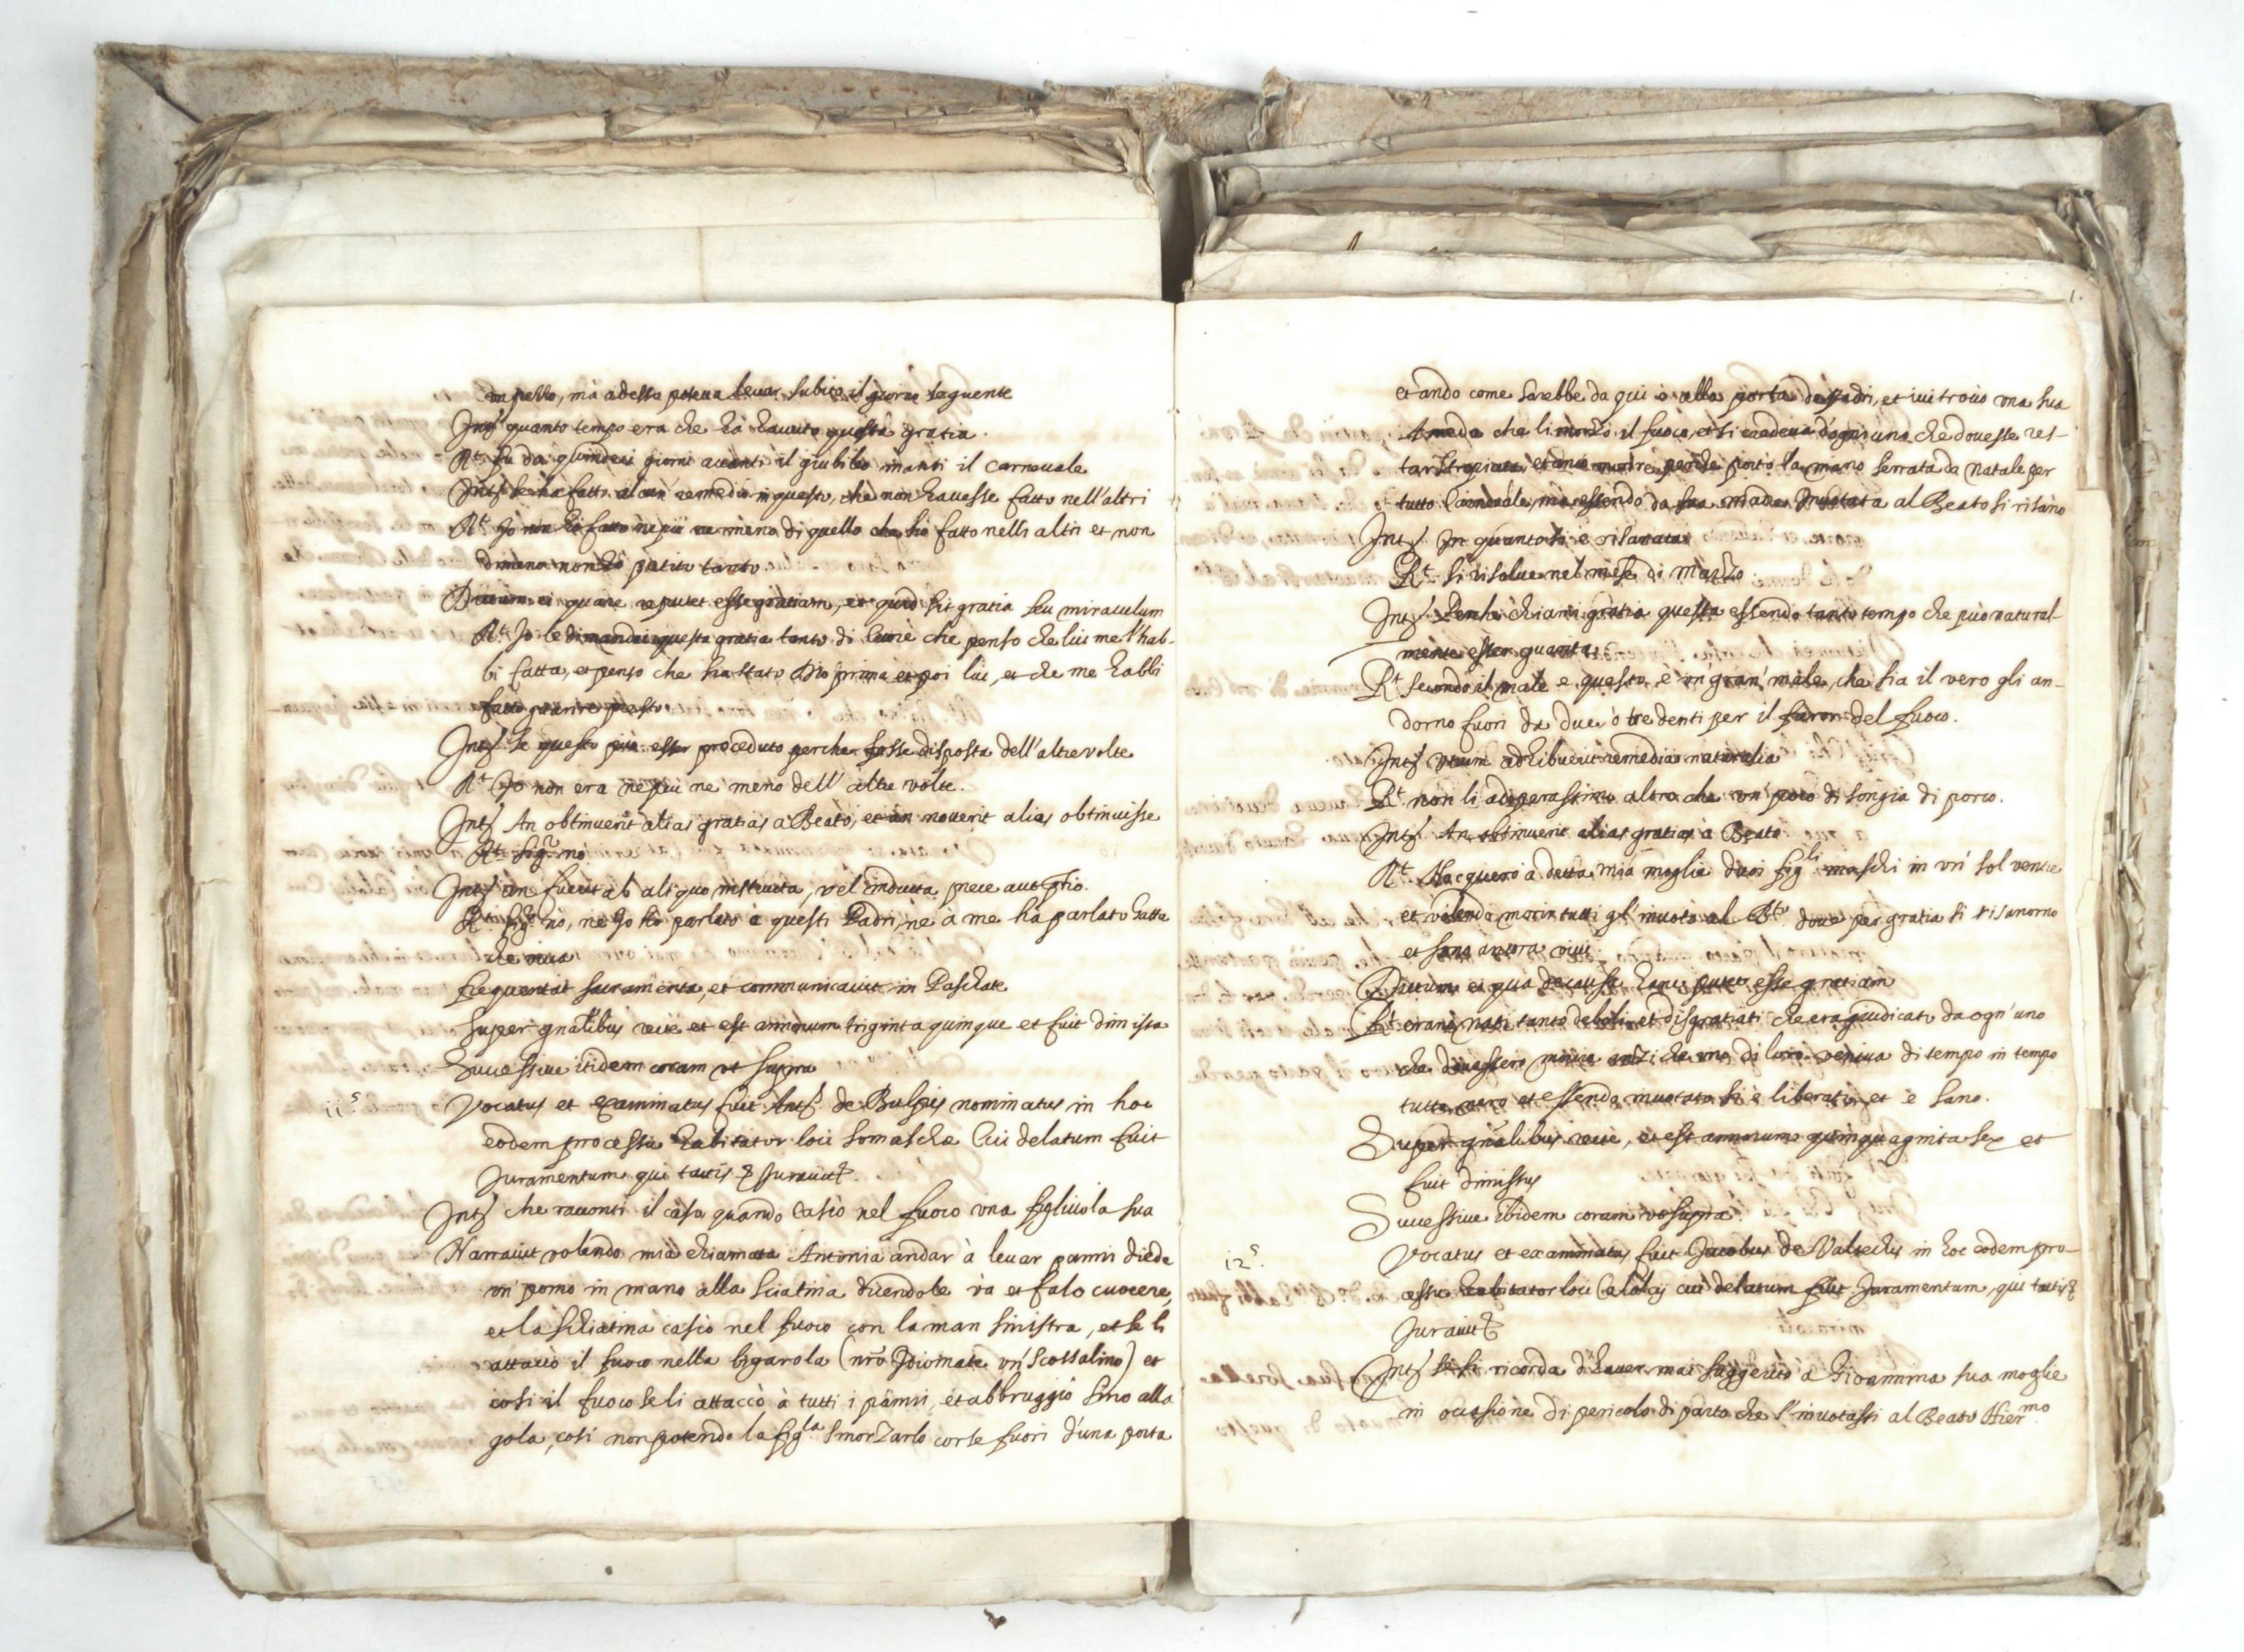 un pello, mà adesso poteva levar subito il giorno seguente
Int.s quanto tempo era che hà havuto questa gratia.
R.t fu da quindeci giorni avanti il giubileo inanti il carnevale
Int.s se ha fatto alcun remedio in questo, che non havesse fatto nell'altri
R.t Jo non hò fatto ne più ne meno di quello che hò fatto nelli altri et non
dimeno non hò patito tanto
Dictum ei quare reputet esse gratiam, et quid sit gratia seu miraculum
R.t Jo le dimandai questa gratia tanto di cuore che penso che lui me l'hab-
bi fatta, et penso che sia stato Dio prima et poi lui, et che me habbi
fatto guarire presto
Int.s se questo può esser proceduto perche fosse disposta dell'altre volte
R.t Jo non era ne più ne meno dell' altre volte.
Int.s An obtinuerit alias gratias à Beato, et an noverit alias obtinuisse
R.t Sig.r no
Int.s an fuerit ab aliquo instructa, vel inducta prece aut p̃tio.
R.t Sig.r nò, ne Jo hò parlato à questi Padri, ne à me hà parlato
che viva
frequentat sacramenta, et communicavit in Paschate
super gñalibus recte et est annorum triginta quinque et fuit dimissa
Successive ibidem coram ut supra
11.s Vocatus et examinatus fuit Ant.s de Bulgis nominatus in hoc
eodem processu habitator loci Somaschæ cui delatum fuit
Juramentum qui tactis & Juravit &.
Int.s che racconti il caso quando casiò nel fuoco una figliuola sua
Narravit volendo mia chiamata Antonia andar à levar panni diede
un' pomo in mano alla sciatina dicendole và et falo cuocere,
et la schiatina casiò nel fuoco con la man sinistra, et se li
attaccò il fuoco nella bigarola (nr̃o Jdiomate un' scossalino) et
cosi il fuoco se li attaccò à tutti i panni, et abbruggiò sino alla
gola, cosi non potendo la fig.la smorzarlo corse fuori d'una porta
et andò come sarebbe da qui à alla porta de Padri, et ivi trovò una sua
Ameda che li morzò il fuoco, et si credeva d'ogni uno che dovesse res-
tar stroppiata, et anco morire perche portò la mano serrata da natale per
tutto Carnevale, mà essendo da sua madre Invotata al Beato si risanò
Int.s In quanto si è risanata
R.t si risolse nel mese di Marzo
Int.s Perche chiami gratia questa essendo tanto tempo che può natural-
mente esser guarita
R.t secondo il male e questo è un' gran' male, che sia il vero gli an-
dorno fuori da due ò tre denti per il furor del fuoco.
Int.s Utrum adhibuerit remedia naturalia
R.t non li adoperassimo altro che un' poco di songia di porco.
Int.s An obtinuerit alias gratias à Beato
R.t Nacquero à detta mia moglie duoi fig.li maschi in un' sol ventre
et volendo morir tutti gl' invotò al B.to dove per gratia si risanorno
et sono ancora vivi
Dictum ei qua de causa hanc putet esse gratiam
R.t erano nati tanto deboli et disgratiati che era giudicato da ogn'uno
che dovessero morire anzi che uno di loro veniva di tempo in tempo
tutto nero et essendo invotato si è liberato, et è sano.
Super gñalibus recte, et est annorum quinquaginta sex et
fuit dimissus
Successive ibidem coram ut supra
12.s Vocatus et examinatus fuit Jacobus de Valsechis in hoc eodem pro-
cessu habitator loci Calolcij cui delatum fuit Juramentum, qui tactis &
Juravit &
Int.s se si ricorda d'haver mai suggerito à Gioannina sua moglie
in occasione di pericolo di parto che s'invotassi al Beato Hier.mo